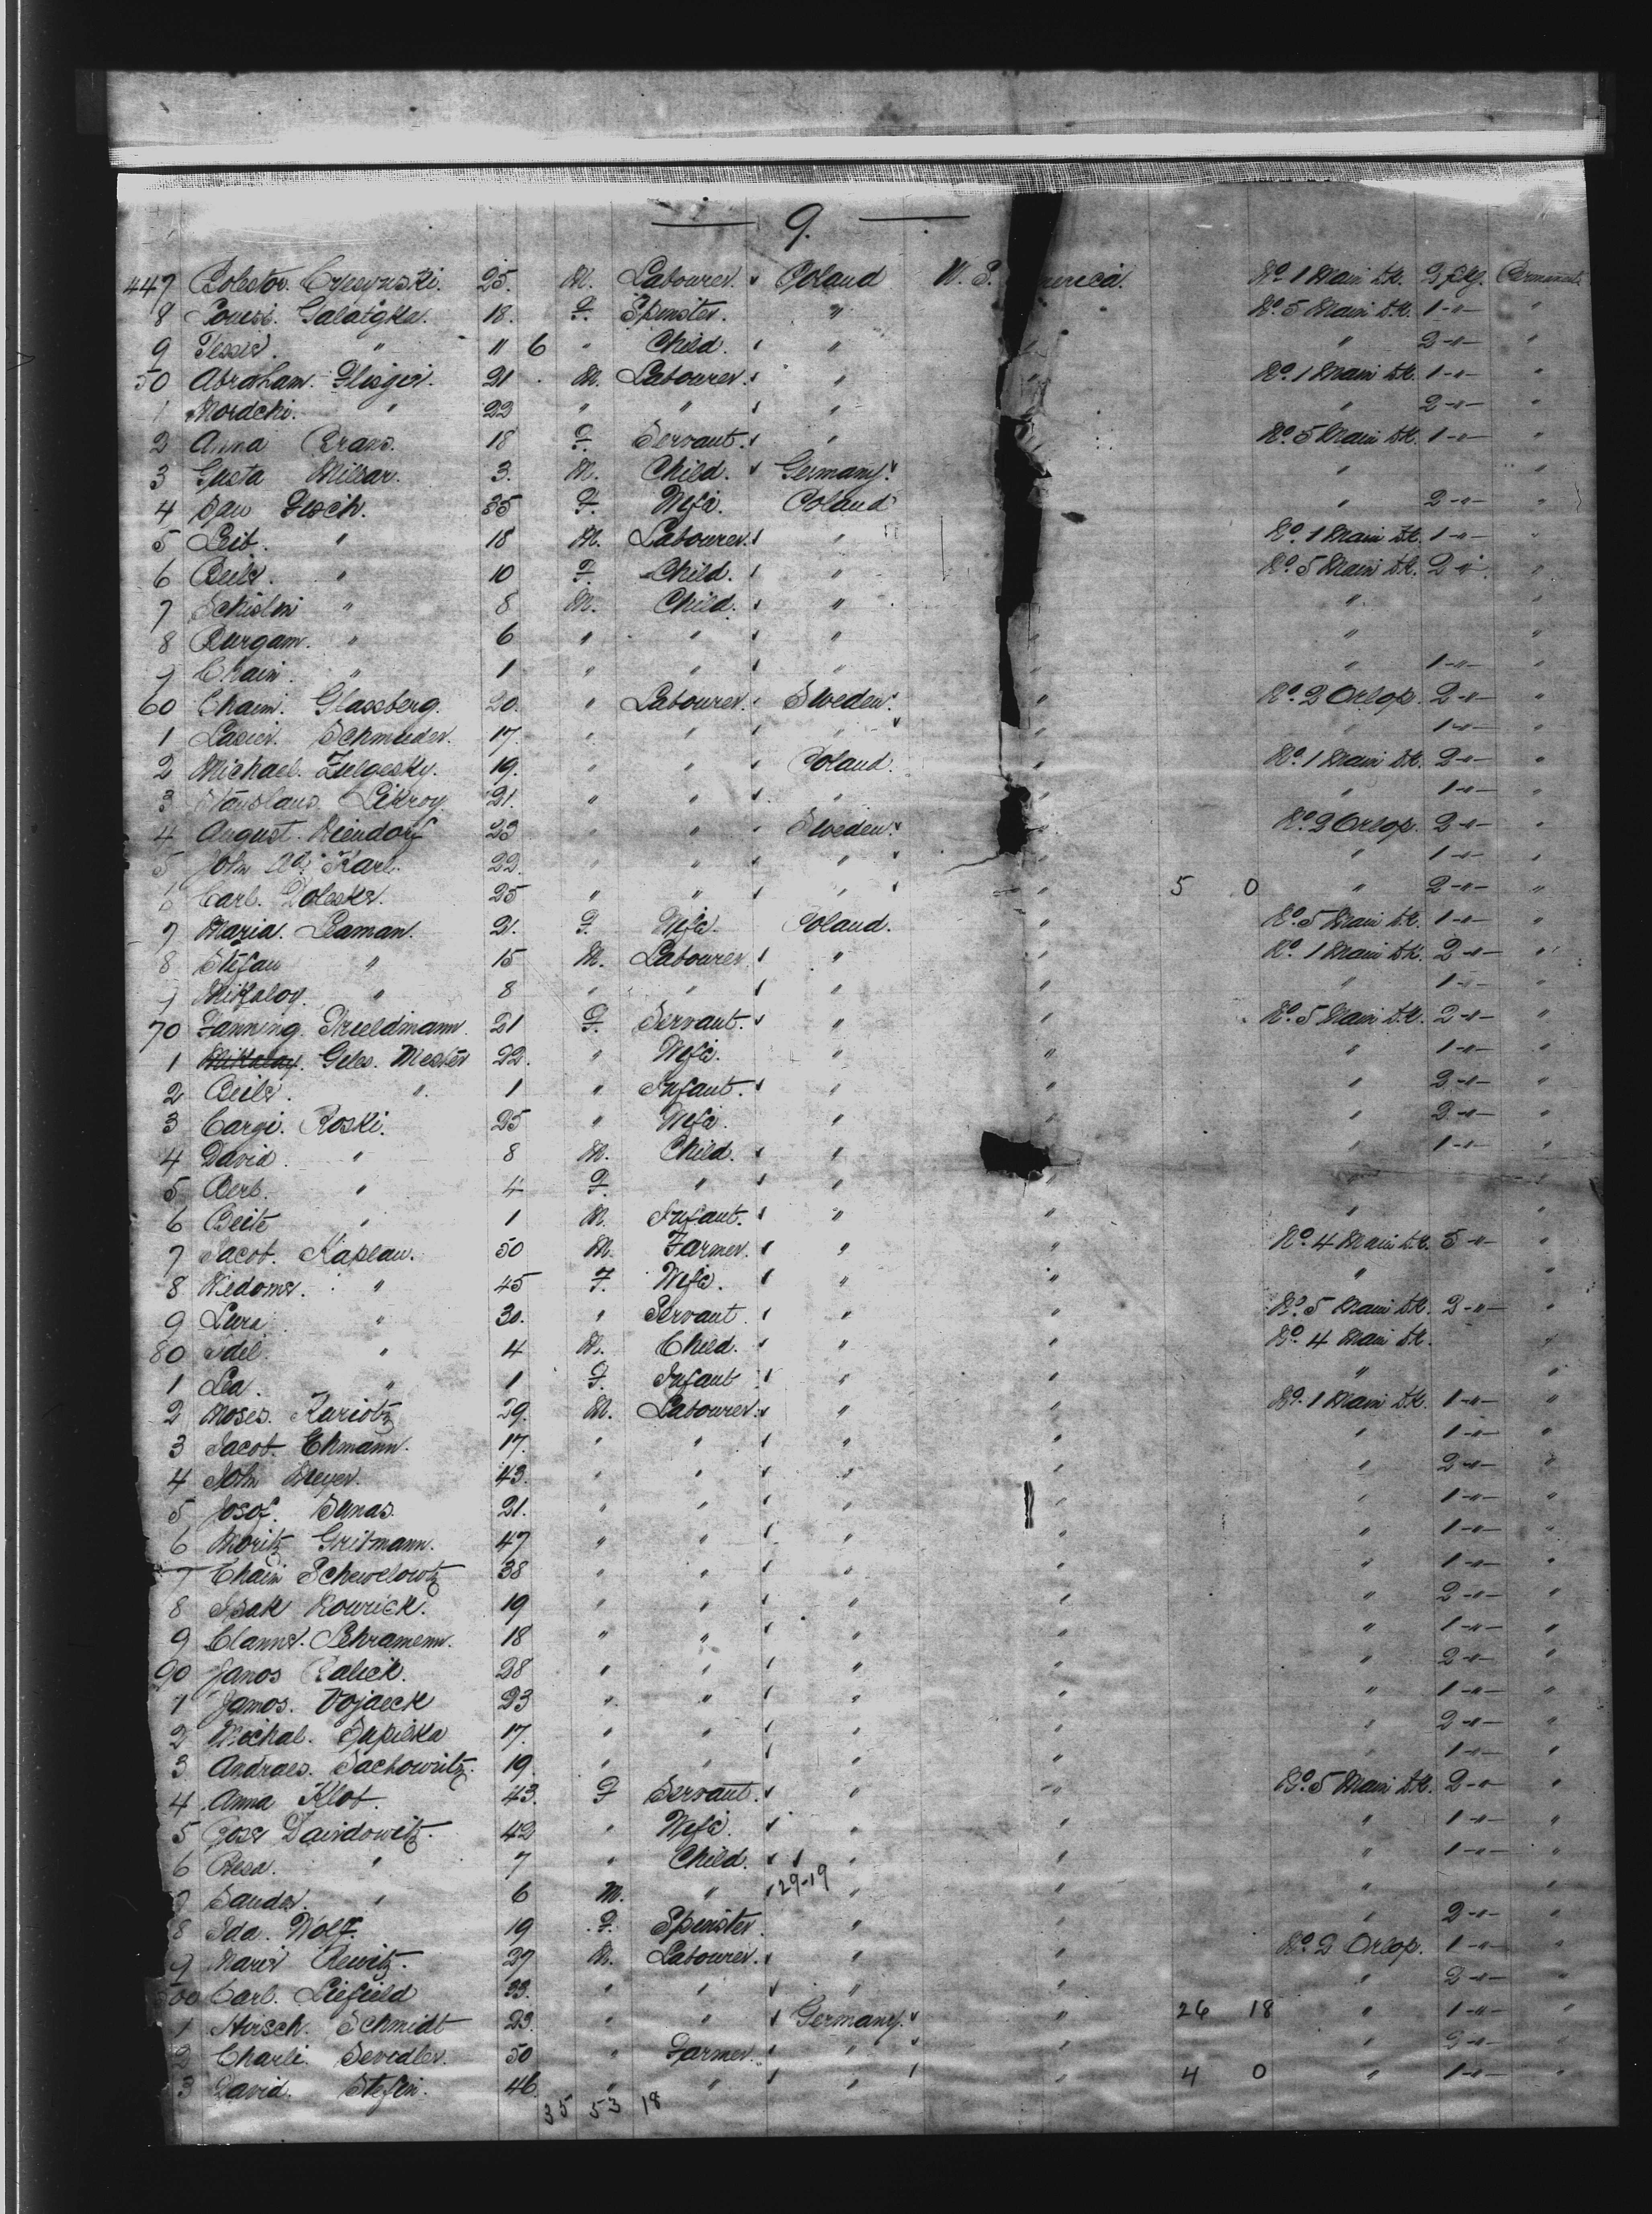 9.
447 Polestor. 25. M. Labourer. Poland U. S. America. No. 1 Main Dk. 2 pkg. Permanent.
8 Louisi. Galatzker. 18. F. Spinster. " " No. 5 Main Dk. 1 -"- "
9 Tesser. " " 6 " Child. " " " 2 -"- "
50 Abraham. Flisgier. 21. M. Labourer. " " No. 1 Main Dk. 1 -"- "
1 Mordchi. " 22 " " " " " 2 -"- "
2 Anna Brans. 18 F. Servant. " " No. 5 Main Dk. 1 -"- "
3 Gusta Millar. 3. M. Child. Germany. " " "
4 Fisch. 35 F. Wife. Poland " " 2 -"- "
5 Leib. " 18 M. Labourer. " " No. 1 Main Dk. 1 -"- "
6 Beile. " 10 F. Child. " " No. 5 Main Dk. 2 -"- "
7 " 8 M. Child. " " " "
8 Burgam. " 6 " " " " " "
9 Chain. " 1 " " " " " 1 -"- "
60 Chaim. Glassberg. 20. " Labourer. Sweden. " No. 2 Orlop. 2 -"- "
1 Lasier. Schmieder. 17. " " " " " 1 -"- "
2 Michael. Zulgesky. 19. " " Poland. " No. 1 Main Dk. 2 -"- "
3 Stanslaus. Likroy. 21. " " " " " 1 -"- "
4 August. Niendorf 23 " " Sweden. " No. 2 Orlop. 2 -"- "
5 John Karl. 22. " " " " " 1 -"- "
6 Carl. Doleske. 25 " " " " 5 0 " 2 -"- "
7 Maria. Laman. 21. F. Wife. Poland. " No. 5 Main Dk. 1 -"- "
8 Stefan " 15 M. Labourer " " No. 1 Main Dk. 2 -"- "
9 Mikoloy. " 8 " " " " " 1 -"- "
70 Fanning. Frieldmann 21 F. Servant. " " No. 5 Main Dk. 2 -"- "
1 Mikolay. Geles. Mester 22. " Wife. " " " 1 -"- "
2 Beile. " 1 " Infant. " " " 2 -"- "
3 Cargi. Roski. 25 " Wife. " " " 2 -"- "
4 David. " 8 M. Child. " " " 1 -"- "
5 Berl. " 4 F. " " " "
6 Beite " 1 M. Infant. " " " "
7 Jacob. Kaplan. 50 M. Farmer. " " No. 4 Main Dk. 5 -"- "
8 Nedome. " 45 F. Wife. " " " "
9 Lura. " 30. " Servant. " " No. 5 Main Dk. 2 -"- "
80 Idel. " 4 M. Child. " " No. 4 Main Dk. "
1 Lea. " 1 F. Infant " " " "
2 Moses. Kuriotz 29. M. Labourer. " " No. 1 Main Dk. 1 -"- "
3 Jacob. Ehmann. 17. " " " " " 1 -"- "
4 John Meyer. 43. " " " " " 2 -"- "
5 Josof. Banas. 21. " " " " " 1 -"- "
6 Moritz Gritmann. 47 " " " " " 1 -"- "
7 Chain Schewelowtz 38 " " " " " 1 -"- "
8 Isak Rowrick. 19 " " " " " 2 -"- "
9 Clanne. Schramenn. 18 " " " " " 1 -"- "
90 Janos Balick. 28 " " " " " 2 -"- "
1 Janos. Vojaeck 23 " " " " " 1 -"- "
2 Michal. Supilka 17. " " " " " 2 -"- "
3 Andraes. Sachowritz. 19. " " " " " 1 -"- "
4 Anna Klot. 43. F Servant. " " No. 5 Main Dk. 2 -"- "
5 Gose Davidowitz. 42 " Wife. " " " 1 -"- "
6 Besa. " 7 " Child. " " " 1 -"- "
7 Sander. " 6 M. " 29-19 " " " "
8 Ida. Wolf. 19 F. Spinster. " " " 2 -"- "
9 Marir Rewitz. 27 M. Labourer. " " No. 2 Orlop. 1 -"- "
500 Carl. Liefield 33. " " " " " 2 -"- "
1 Hirsch. Schmidt 23. " " Germany. " 26 18 " 1 -"- "
2 Charli. Sevedler. 50 " Farmer. " " " 2 -"- "
3 David. Stefin. 46. " " " " 4 0 " 1 -"- "
35 53 18